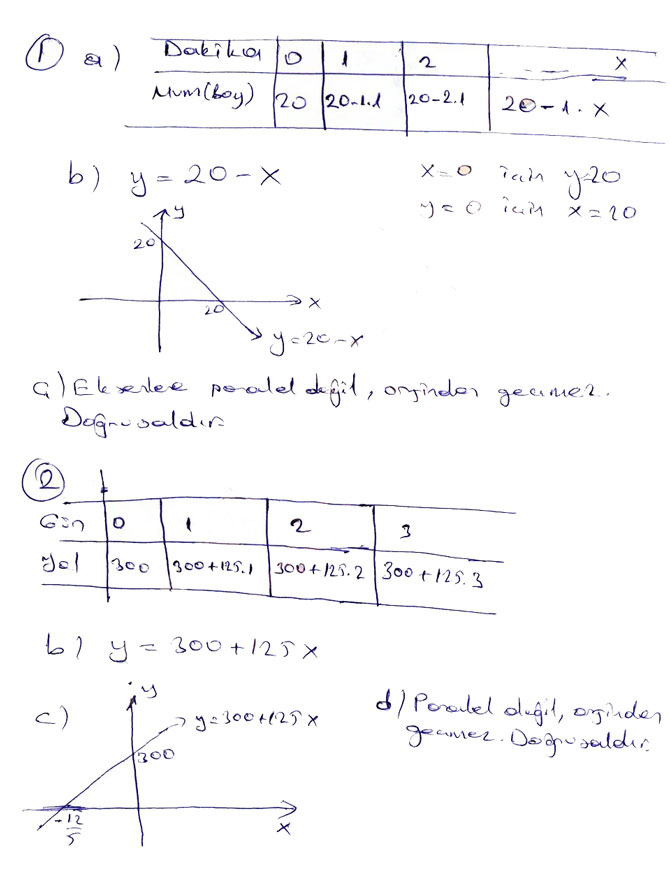 1 a) Dakika 0 1 2 __ __ x
Mum(boy) 20 20-1.1 20-2.1 20-1.x
b) y = 20-x
x=0 için y=20
y=0 için x=20
y
20
20
x
y=20-x
c) Eksenlere paralel değil, orjinden geçmez.
Doğrusaldır.
2
Gün 0 1 2 3
Yol 300 300+125.1 300+125.2 300+125.3
b) y = 300+125x
c)
y
y=300+125x
300
-12/5
x
d) Paralel değil, orjinden
geçmez. Doğrusaldır.